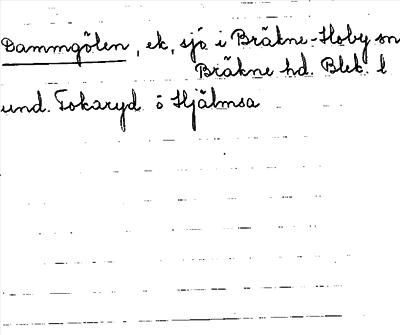 Dammgölen, ek, sjö i Bräkne-Hoby sn
Bräkne hd. Blek. l
und. Tokaryd o Hjälmsa